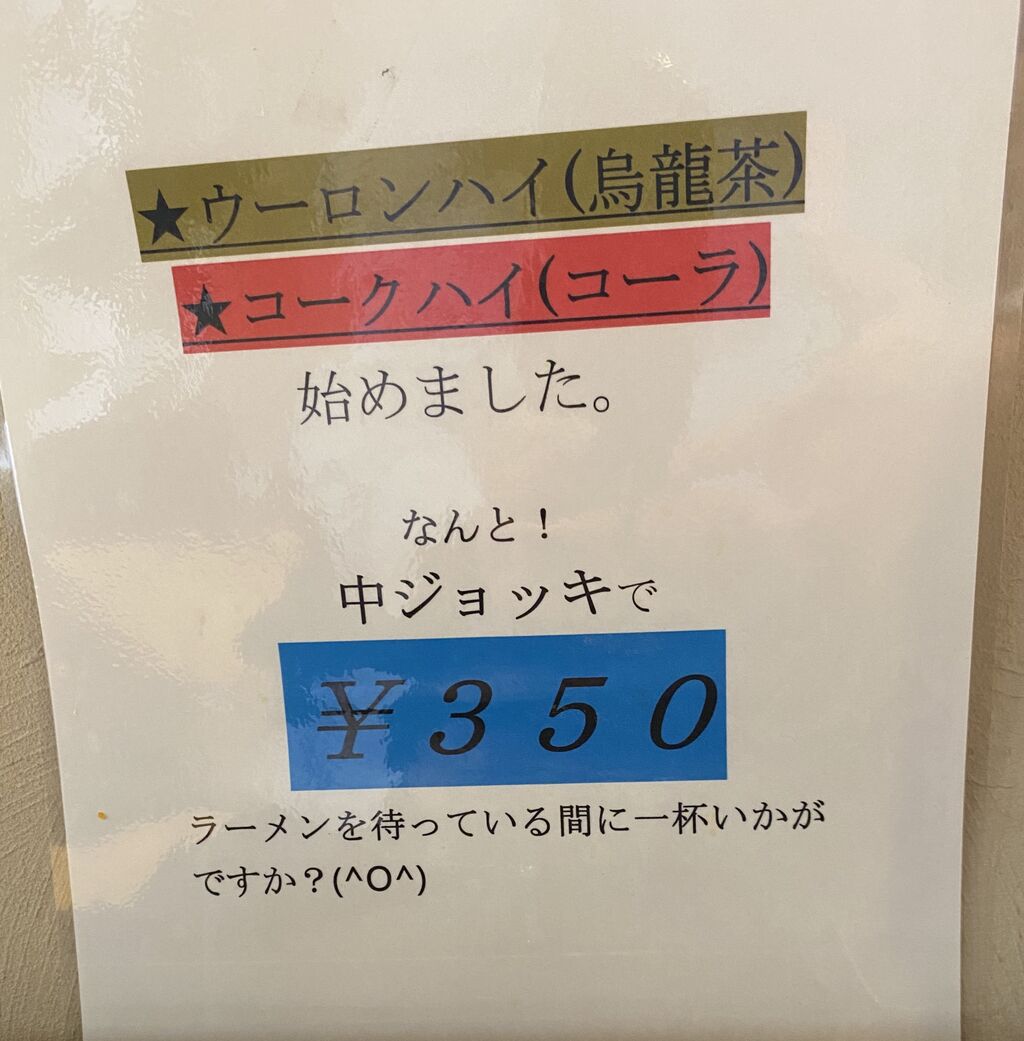 ★ウーロンハイ(烏龍茶)
★コークハイ(コーラ)
始めました。
なんと！
中ジョッキで
￥３５０
ラーメンを待っている間に一杯いかが
ですか？(^O^)